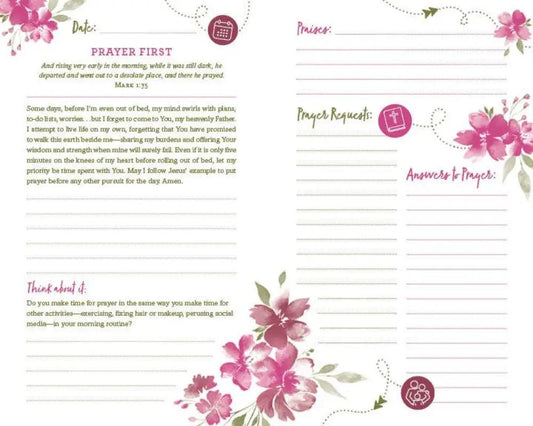 Date:
PRAYER FIRST
And rising very early in the morning, while it was still dark, he
departed and went out to a desolate place, and there he prayed.
Mark 1:35
Some days, before I'm even out of bed, my mind swirls with plans,
to-do lists, worries. . .but I forget to come to You, my heavenly Father.
I attempt to live life on my own, forgetting that You have promised
to walk this earth beside me—sharing my burdens and offering Your
wisdom and strength when mine will surely fail. Even if it is only five
minutes on the knees of my heart before rolling out of bed, let my
priority be time spent with You. May I follow Jesus' example to put
prayer before any other pursuit for the day. Amen.
Think about it:
Do you make time for prayer in the same way you make time for
other activities—exercising, fixing hair or makeup, perusing social
media—in your morning routine?
Praises:
Prayer Requests:
Answers to Prayer: